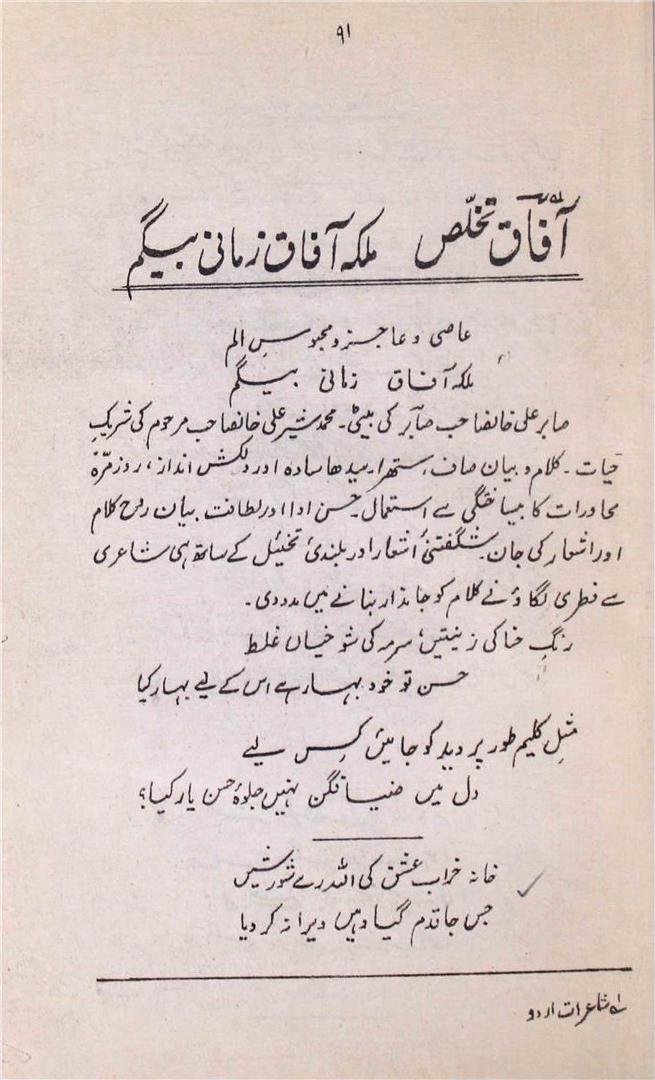 ۹۱
آفاقؔ تخلّص ملکہ آفاق زمانی بیگم
عاصی و عاجز و محبوسِ الم
ملکہ آفاق زمانی بیگم
صابر علی خانصاحب صابرؔ کی بیٹی۔ محمد شیر علی خانصاحب مرحوم کی شریکِ
حیات۔ کلام و بیان صاف، ستھرا۔ سیدھا سادہ اور دلکش انداز، روز مرّہ
محاورات کا بیساختگی سے استعمال۔ حسن ادا اور لطافت بیان روح کلام
اور اشعار کی جان۔ شگفتگیٔ اشعار اور بلندیٔ تخئیل کے ساتھ ہی شاعری
سے فطری لگاؤ نے کلام کو جاندار بنانے میں مدد دی۔
رنگِ حنا کی زینتیں، سرمہ کی شوخیاں غلط
حسن تو خود بہار ہے اس کے لیے بہار کیا
مثلِ کلیم طور پر دید کو جائیں کِس لیے
دل میں ضیا فگن نہیں جلوۂ حسن یار کیا؟
خانہ خراب عشق کی اللہ رے شورشیں
جس جا قدم گیا وہیں ویرانہ کر دیا
لے شاعرات اردو